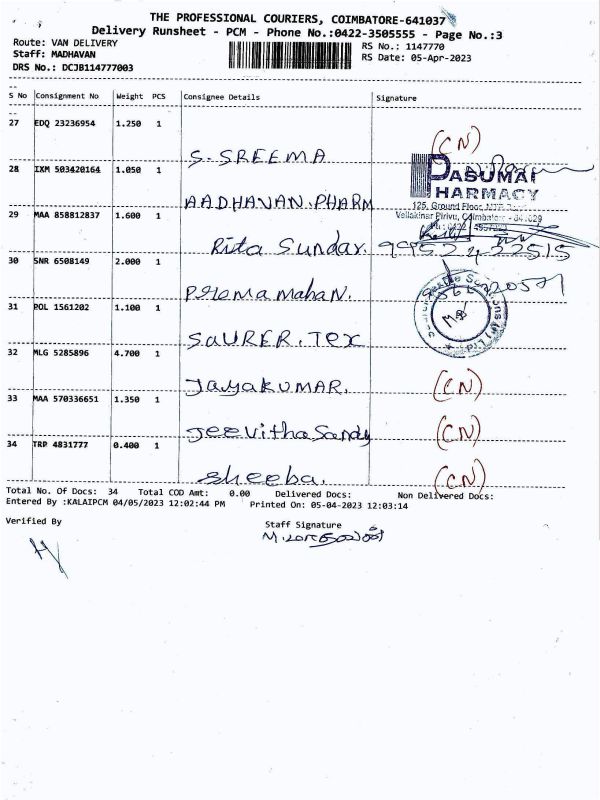 THE PROFESSIONAL COURIERS, COIMBATORE-641037
Delivery Runsheet - PCM - Phone No.:0422-3505555 - Page No.:3
Route: VAN DELIVERY
RS No.: 1147770
Staff: MADHAVAN
RS Date: 05-Apr-2023
DRS No.: DCJB114777003
S No Consignment No Weight PCS Consignee Details Signature
27 EDQ 23236954 1.250 1
S. SREEMA (CN)
28 IXM 503420164 1.050 1
AADHAVAN. PHARM
PASUMAI PHARMACY
125, Ground Floor,
Vellakinar Pirivu, Coimbatore - 641029
29 MAA 858812837 1.600 1
Rita Sundar. 99524 22515
30 SNR 6508149 2.000 1
Prema mahan.
31 POL 1561202 1.100 1
SAURER. Tex
32 MLG 5285896 4.700 1
JayaKUMAR. (CN)
33 MAA 570336651 1.350 1
Jeevitha Sandy (CN)
34 TRP 4831777 0.400 1
Sheeba. (CN)
Total No. Of Docs: 34 Total COD Amt: 0.00 Delivered Docs: Non Delivered Docs:
Entered By :KALAIPCM 04/05/2023 12:02:44 PM Printed On: 05-04-2023 12:03:14
Verified By Staff Signature
M. மாதவன்